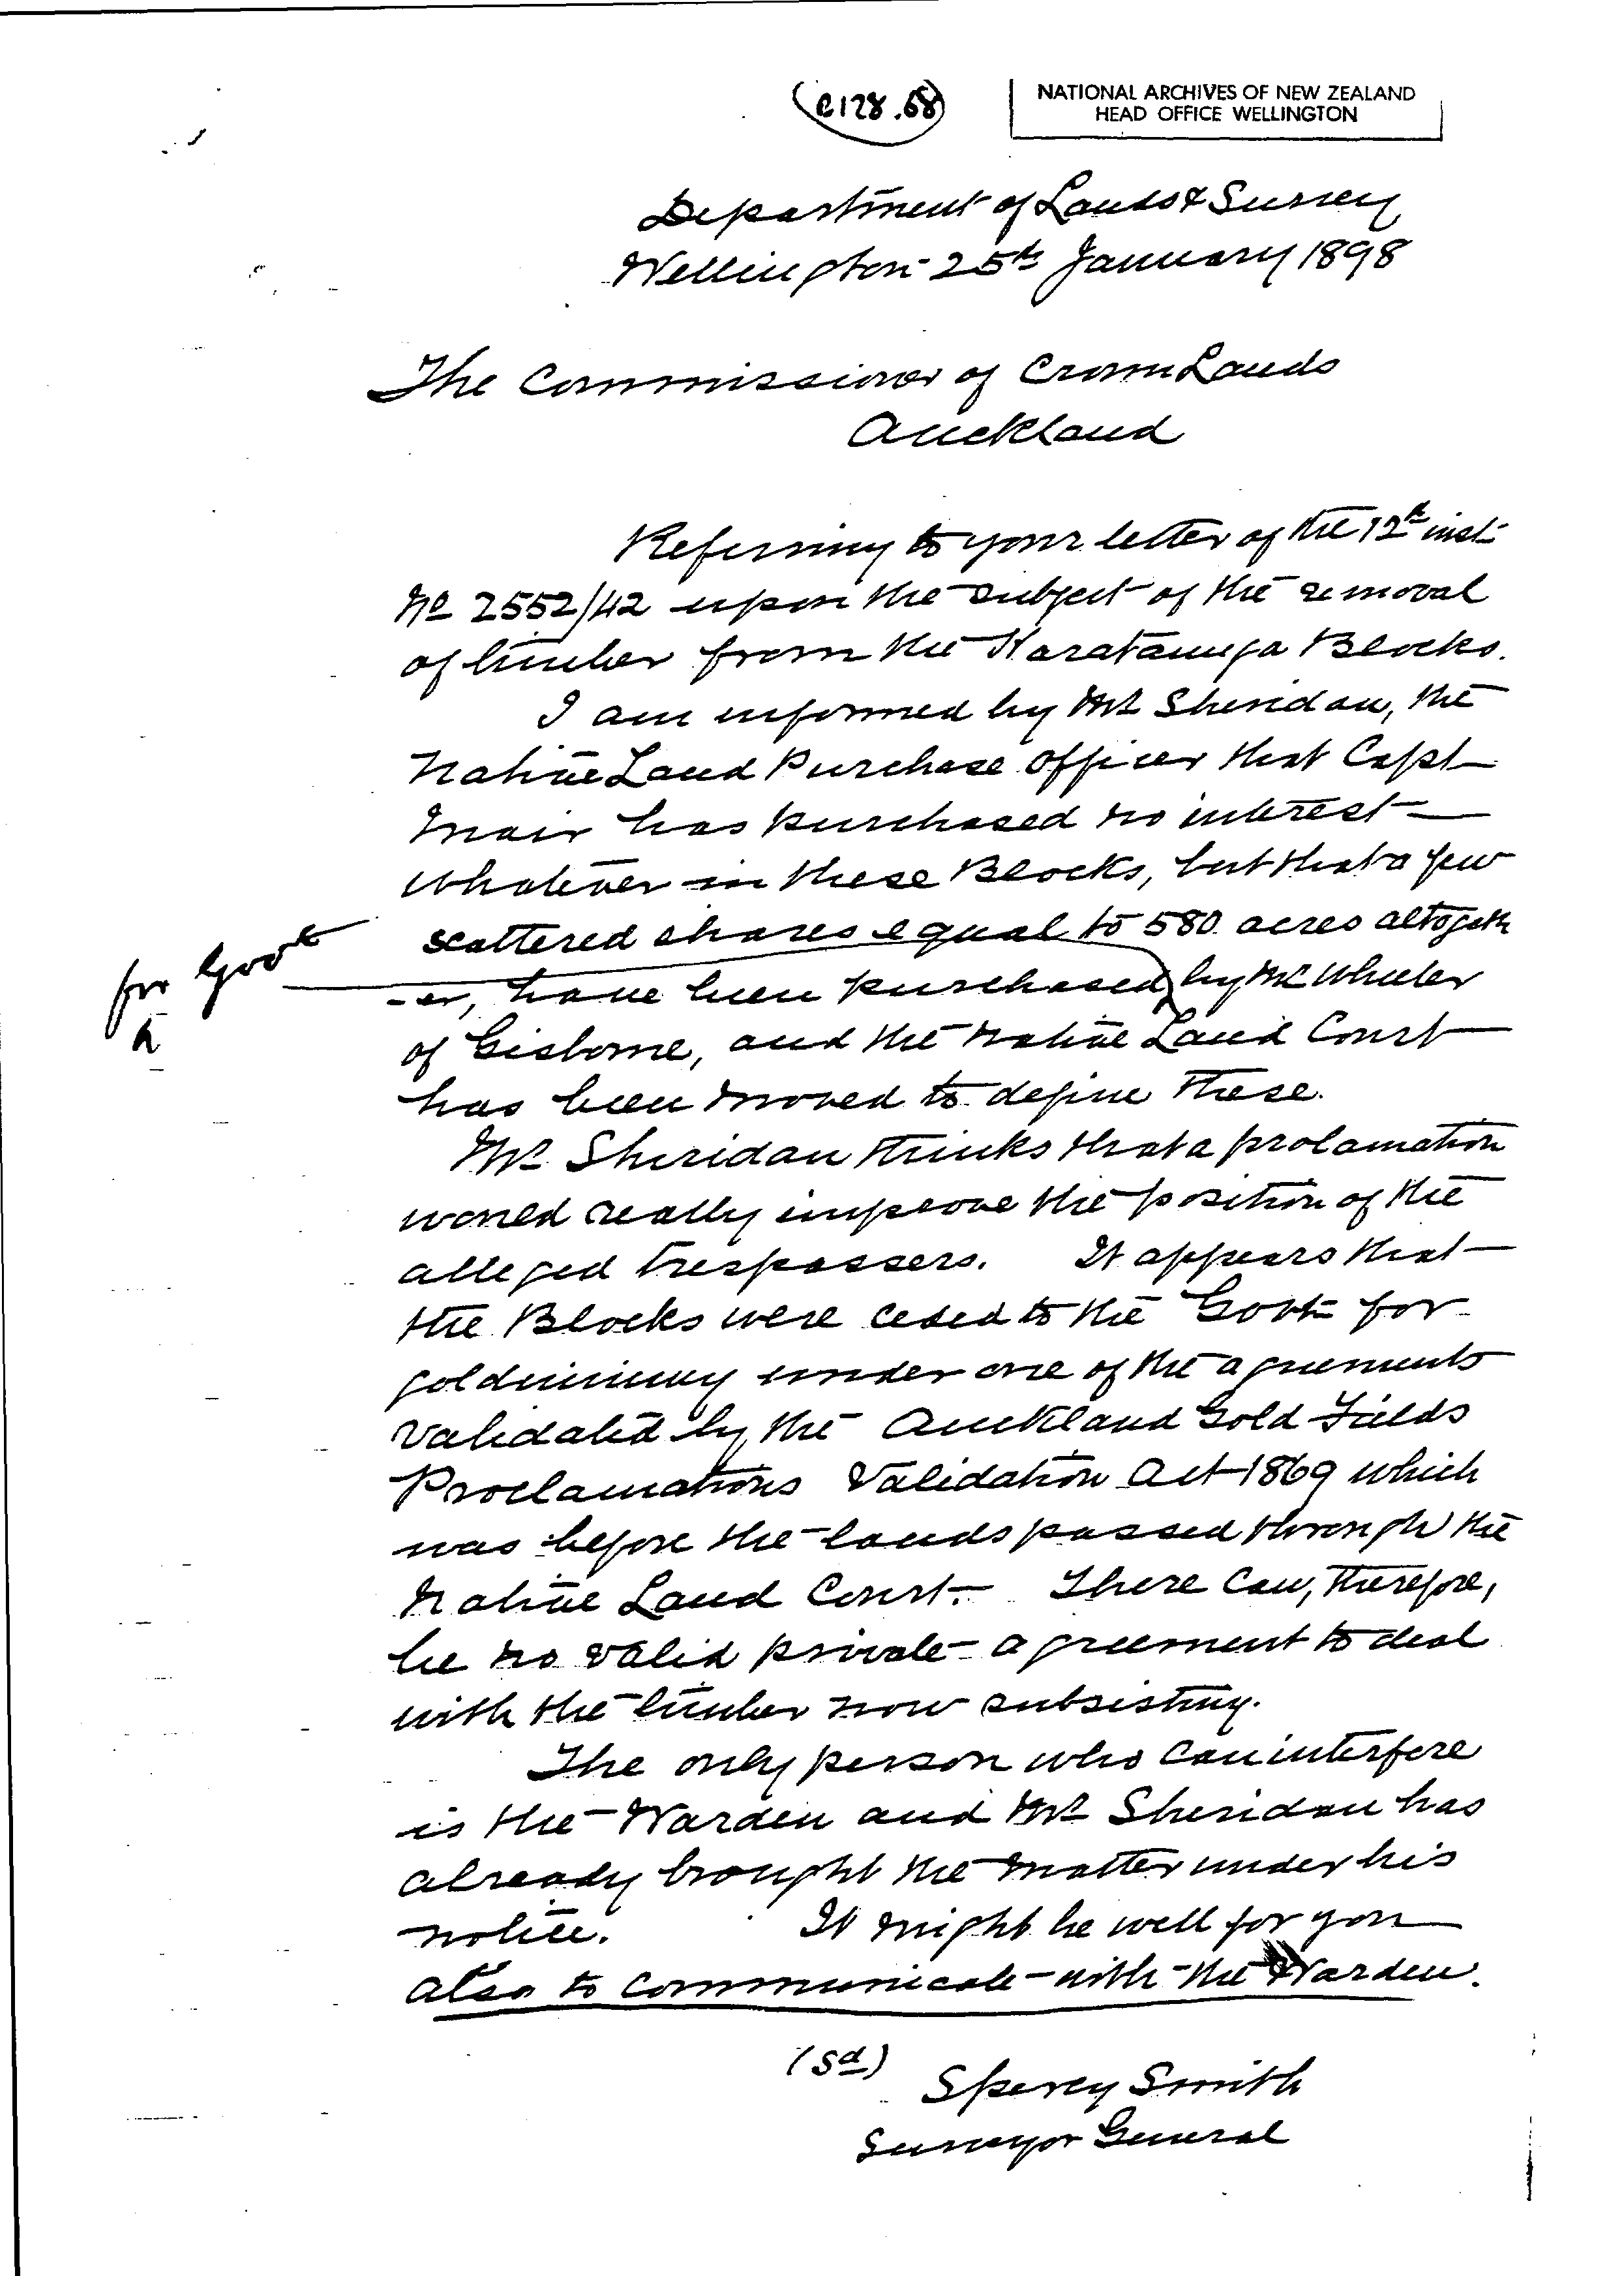 C128.68
NATIONAL ARCHIVES OF NEW ZEALAND
HEAD OFFICE WELLINGTON
Department of Lands & Survey
Wellington 25th January 1898
The Commissioner of Crown Lands
Auckland
Referring to your letter of the 12th inst
No 2552/42 upon the subject of the removal
of timber from the Karatanuga Blocks.
I am informed by Mr Sheridan, the
Native Land Purchase Officer that Capt
Mair has purchased no interest
whatever in these Blocks, but that a few
scattered shares equal to 580 acres altogeth
-er, have been purchased by Mr Wheeler
for Govt
of Gisborne, and the Native Land Court
has been moved to define these.
Mr Sheridan thinks that a prolamation
would really improve the position of the
alleged trespassers. It appears that
the Blocks were ceded to the Govt for
goldmining under one of the agreements
validated by the Auckland Gold Fields
Proclamations Validation Act 1869 which
was before the lands passed through the
Native Land Court. There can, therefore,
be no valid private agreement to deal
with the timber now subsisting.
The only person who can interfere
is the Warden and Mr Sheridan has
already brought the matter under his
notice. It might be well for you
also to communicate with the Warden.
(Sd)
S Percy Smith
Surveyor General